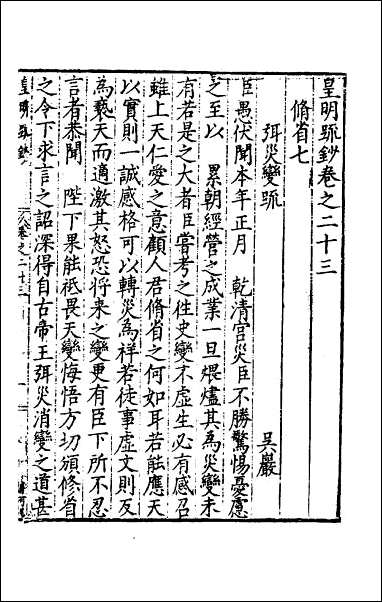 皇明疏鈔卷之二十三
脩省七
弭災變疏　吳巖
臣愚伏聞本年正月　乾清宮災臣不勝驚惕憂慮
之至以　累朝經營之成業一旦煨燼其為災變未
有若是之大者臣嘗考之徃史變不虛生必有感召
雖上天仁愛之意顧人君脩省之何如耳若能應天
以實則一誠感格可以轉災為祥若徒事虛文則反
為褻天而適激其怒恐將来之變更有臣下所不忍
言者恭聞　陛下果能祗畏天變悔悟方切頒修省
之令下求言之詔深得自古帝王弭災消變之道甚
皇明疏鈔　卷之二十三